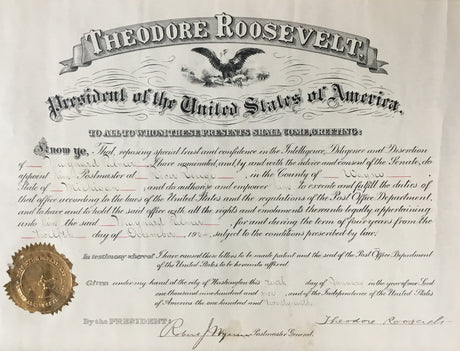 THEODORE ROOSEVELT,
President of the United States of America.
TO ALL TO WHOM THESE PRESENTS SHALL COME, GREETING:
Know ye, That, reposing special trust and confidence in the Intelligence, Diligence and Discretion
of I have nominated, and, by and with the advice and consent of the Senate, do
appoint Postmaster at in the County of Wayne
State of Michigan, and do authorize and empower to execute and fulfill the duties
of that office according to the laws of the United States and the regulations of the Post Office Department,
and to have and to hold the said office with all the rights and emoluments thereunto legally appertaining
unto the said for and during the term of four years from the
day of December 190 subject to the conditions prescribed by law.
In testimony whereof I have caused these letters to be made patent and the seal of the Post Office Department
of the United States to be hereunto affixed.
Given under my hand at the city of Washington this day of January in the year of our Lord
one thousand nine hundred and and of the Independence of the United States
of America the one hundred and
By the PRESIDENT: Theodore Roosevelt
Robert J. Wynne Postmaster General.